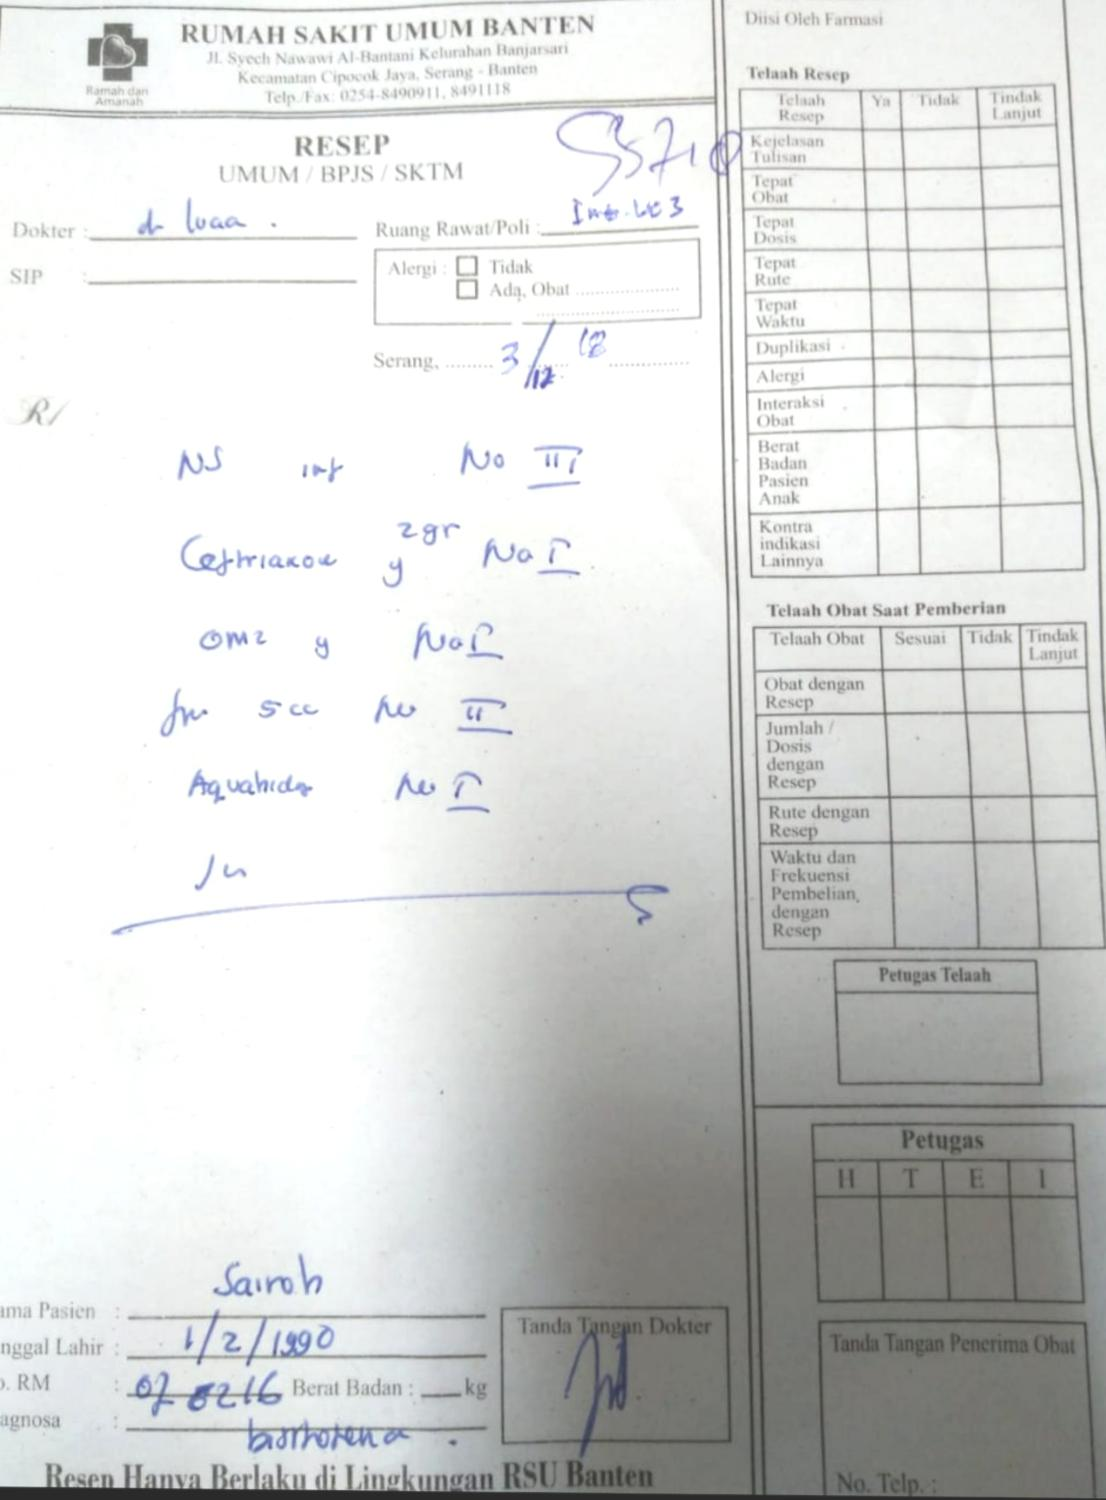 RUMAH SAKIT UMUM BANTEN
Jl. Syech Nawawi Al-Bantani Kelurahan Banjarsari
Kecamatan Cipocok Jaya, Serang - Banten
Telp./Fax: 0254-8490911, 8491118
Ramah dan
Amanah
RESEP
UMUM / BPJS / SKTM
Dokter : dr
Ruang Rawat/Poli :
SIP :
Alergi : Tidak
Ada, Obat ....................
....................
Serang, ........ 3/12 18 ................
R/
NS inf No III
2gr No I
OMZ No I
5 cc No II
No I
Nama Pasien : Sairoh
Tanggal Lahir : 1/2/1990
No. RM : Berat Badan : ___ kg
agnosa :
Tanda Tangan Dokter
Resep Hanya Berlaku di Lingkungan RSU Banten
Diisi Oleh Farmasi
Telaah Resep
Telaah Resep Ya Tidak Tindak Lanjut
Kejelasan Tulisan
Tepat Obat
Tepat Dosis
Tepat Rute
Tepat Waktu
Duplikasi
Alergi
Interaksi Obat
Berat Badan Pasien Anak
Kontra indikasi Lainnya
Telaah Obat Saat Pemberian
Telaah Obat Sesuai Tidak Tindak Lanjut
Obat dengan Resep
Jumlah / Dosis dengan Resep
Rute dengan Resep
Waktu dan Frekuensi Pembelian, dengan Resep
Petugas Telaah
Petugas
H T E I
Tanda Tangan Penerima Obat
No. Telp. :